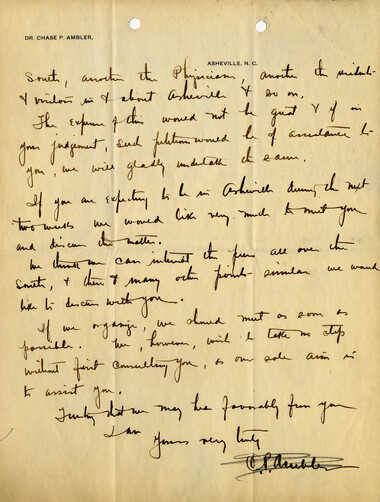 DR. CHASE P. AMBLER,
ASHEVILLE, N. C.
South, another the Physicians, another the residents
& visitors in & about Asheville & so on.
The Expense of this would not be great & if in
your judgement, such petition would be of assistance to
you, we will gladly undertake the same.
If you are Expecting to be in Asheville during the next
two weeks we would like very much to meet you
and discuss the matter.
We think we can interest the press all over the
South, & there & many other points similar we would
like to discuss with you.
If we organize, we should meet as soon as
possible. We, however, wish to take no step
without first consulting you, as our sole aim is
to assist you.
Trusting that we may hear favorably from you
I am
Yours very truly
C. P. Ambler